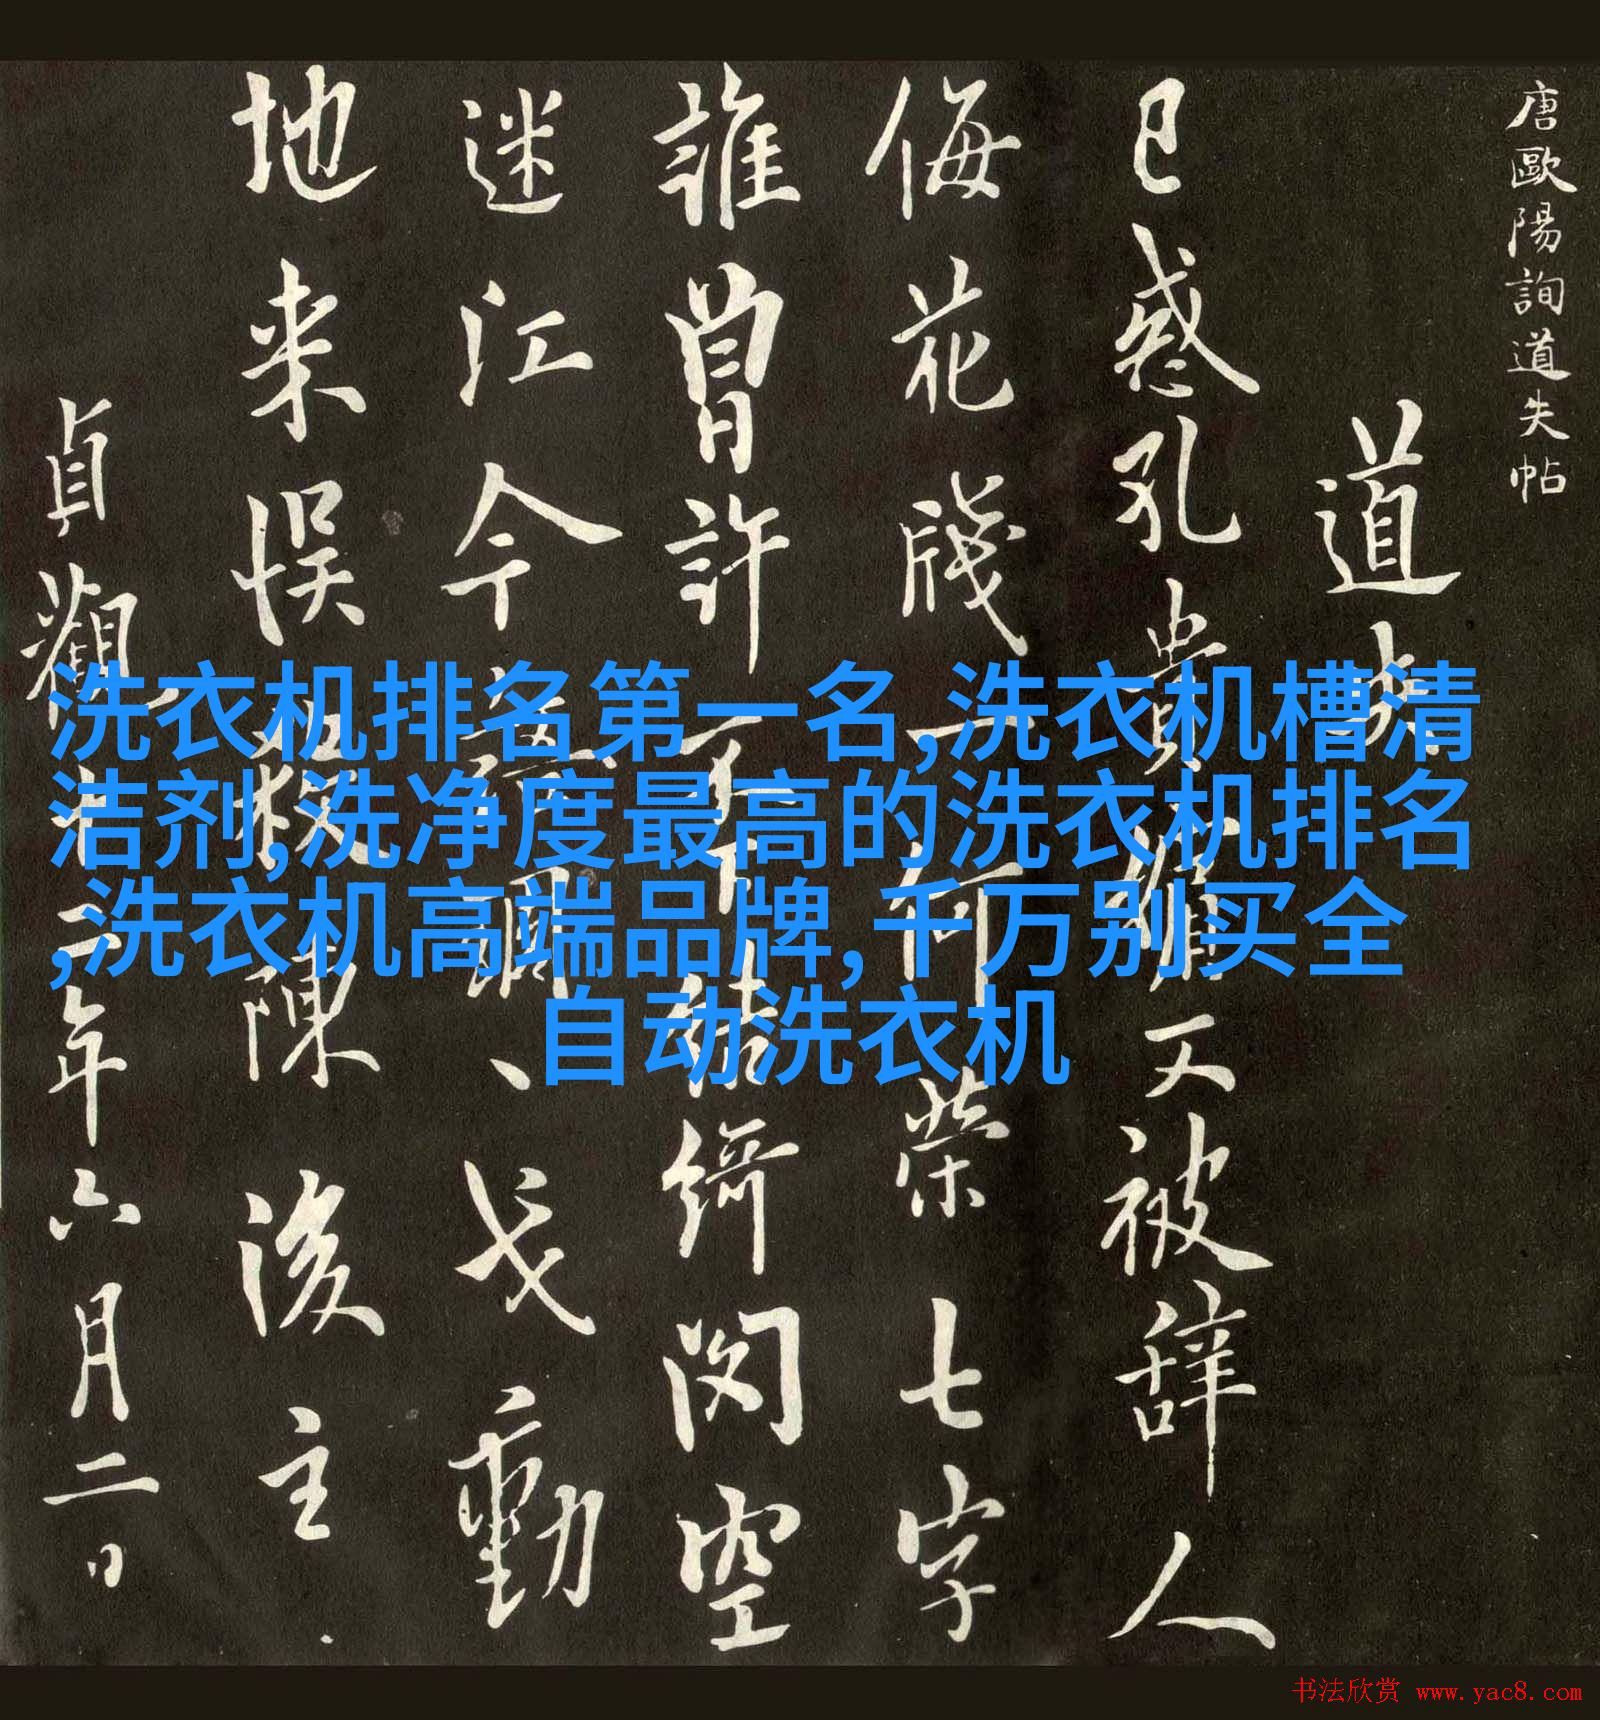 唐歐陽詢道失帖
道失
已惑孔貴嬪又被辞人
侮花牋一何榮七字
誰曾許不下結綺閣空
迷江令語雕戈動
地来悮殺陳後主
貞觀十二年六月二日
洗衣机排名第一名,洗衣机槽清
洁剂,洗净度最高的洗衣机排名
,洗衣机高端品牌,千万别买全
自动洗衣机
书法欣赏 www.yac8.com